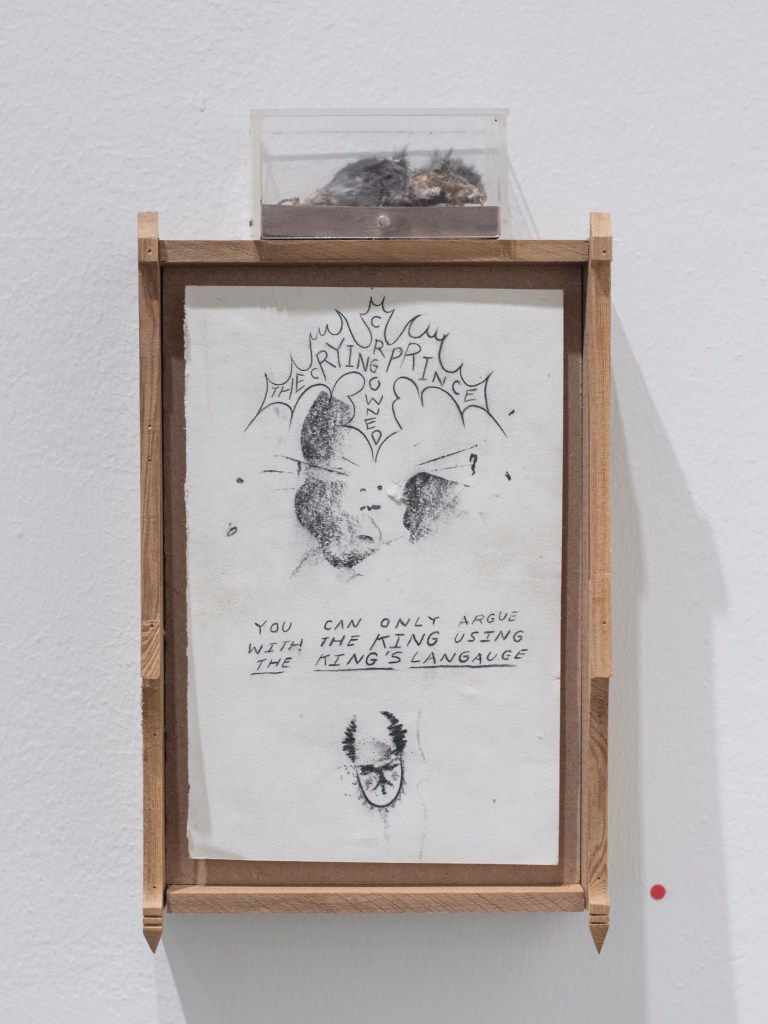 THE CRYING PRINCE
CROWNED
YOU CAN ONLY ARGUE
WITH THE KING USING
THE KING'S LANGAUGE